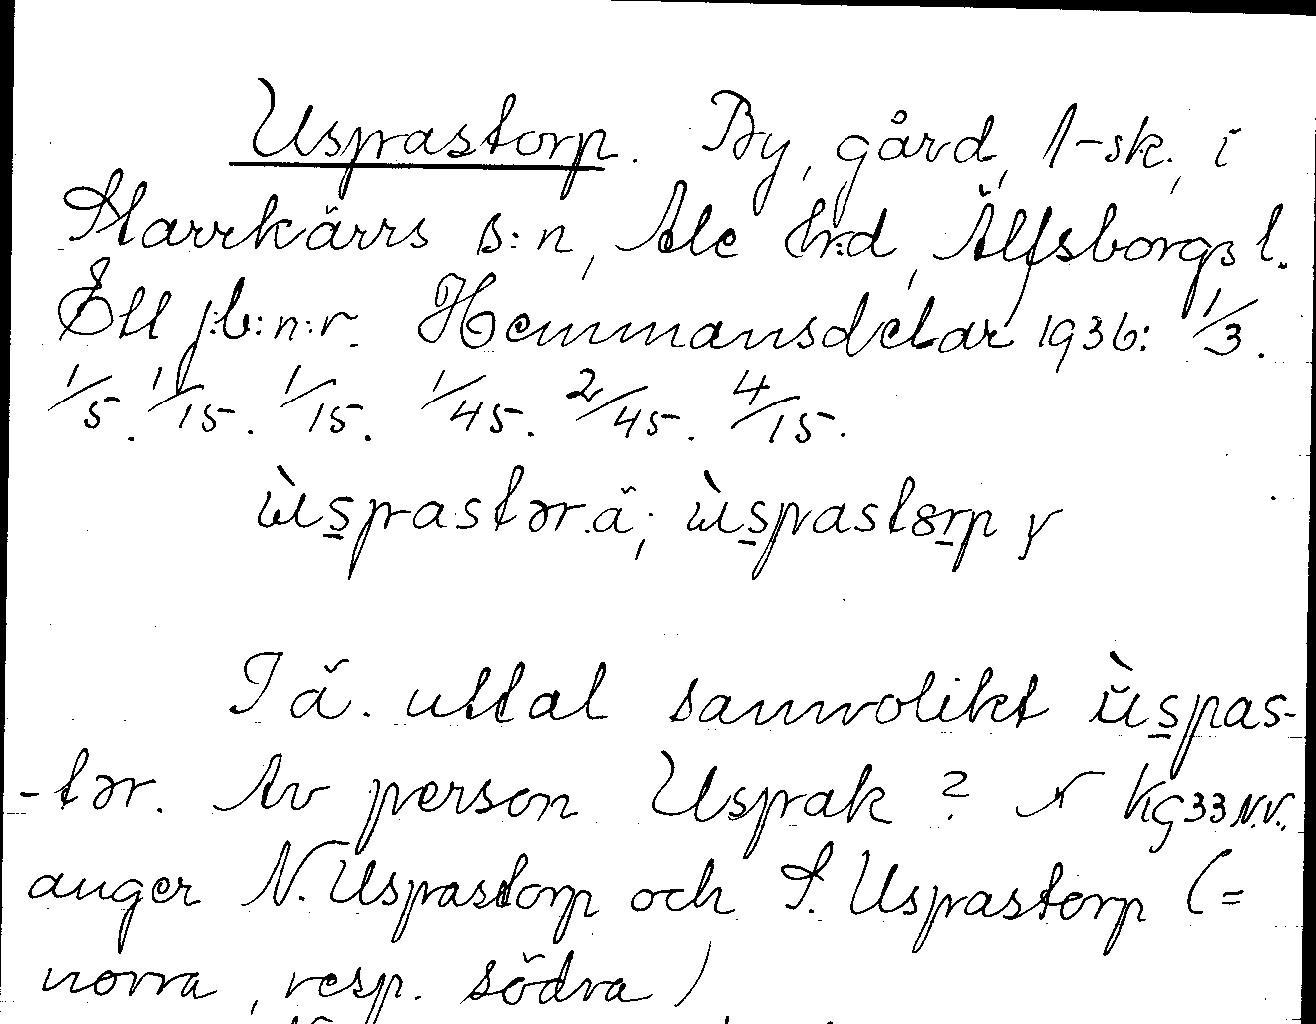 Uspastorp. By, gård, 1-sk., i
Starrkärrs s:n, Ale hrd, Älfsborgs l.
Ett jb:n:r. Hemmansdelar 1936: 1/3.
1/5. 1/15. 1/15. 1/45. 2/45. 4/15.
ùspastər ä; ùspastorp y
I ä. uttal sannolikt ùspas-
-tər. Av person Uspak? KG33N.V.
anger N. Uspastorp och S. Uspastorp (=
norra, resp. södra)